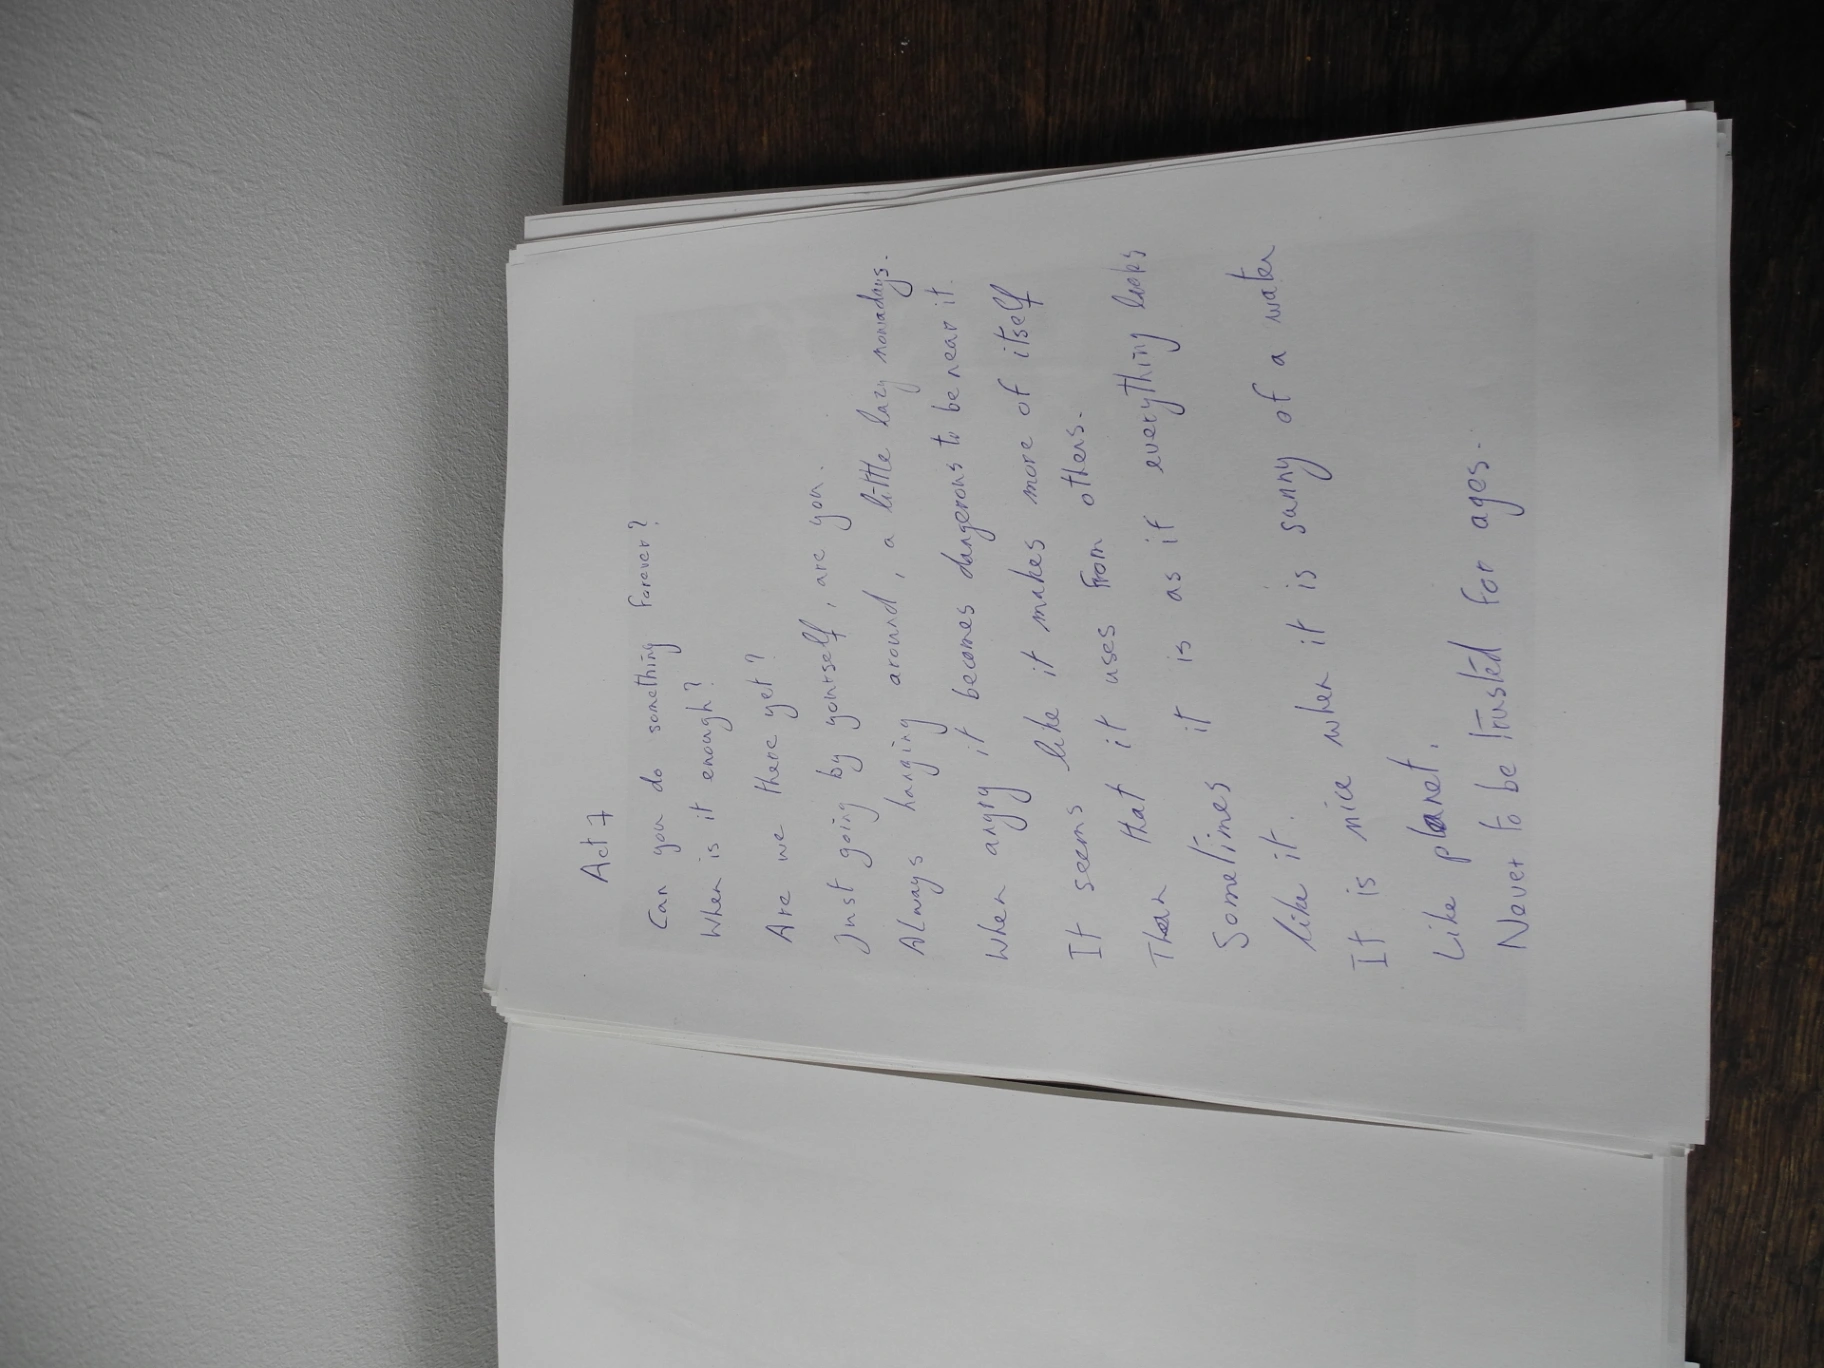 Act 7
Can you do something forever?
When is it enough?
Are we there yet?
Just going by yourself, are you.
Always hanging around, a little lazy nowadays.
When angry it becomes dangerous to be near it.
It seems like it makes more of itself
Than that it uses from others.
Sometimes it is as if everything looks
like it.
It is nice when it is sunny of a water
Like planet.
Never to be trusted for ages.